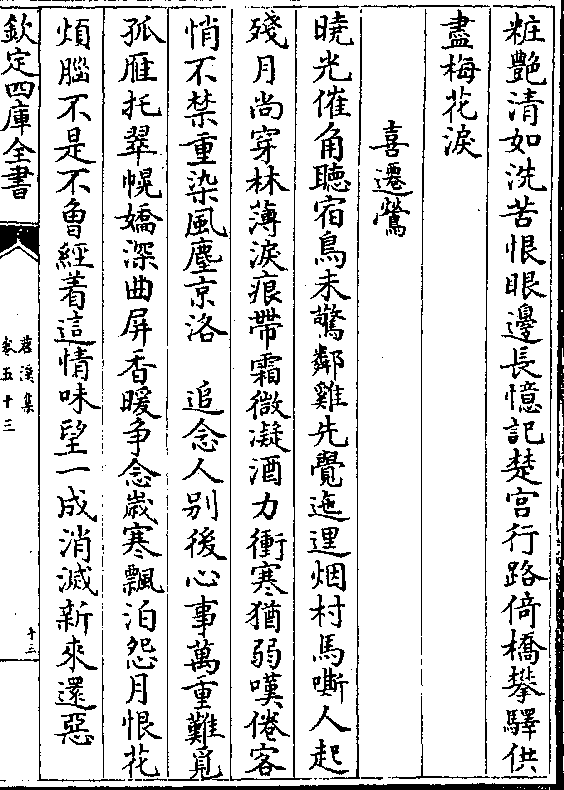 粧艷清如洗苦恨眼邊長憶記楚宫行路倚橋攀驛供
盡梅花淚
喜遷鶯
曉光催角聽宿鳥未驚鄰雞先覺迤逗烟村馬嘶人起
殘月尚穿林薄淚痕帶霜微凝酒力衝寒猶弱嘆倦客
悄不禁重染風塵京洛　追念人别後心事萬重難覓
孤雁托翠幌嬌深曲屏香暖争念歲寒飄泊怨月恨花
煩腦不是不曾經着這情味望一成消滅新來還惡
欽定四庫全書
苕溪集
卷五十三
十三